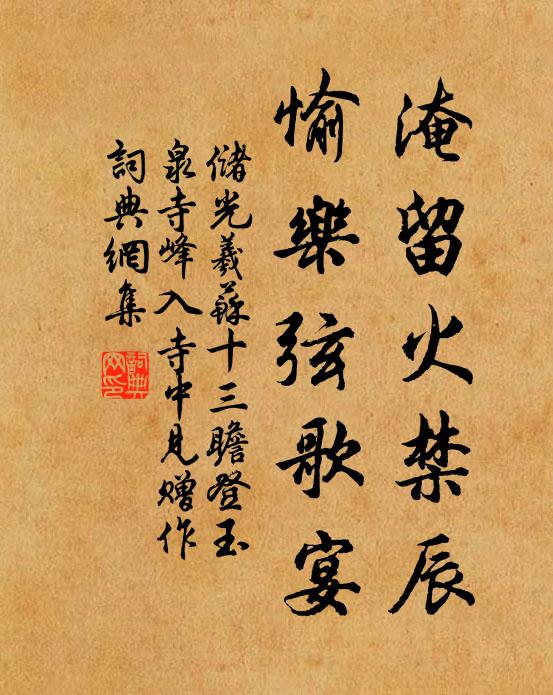 淹留火禁辰
愉樂弦歌宴
儲光羲蘇十三瞻登玉
泉寺峰入寺中見贈作
詞典網集
詞典網印